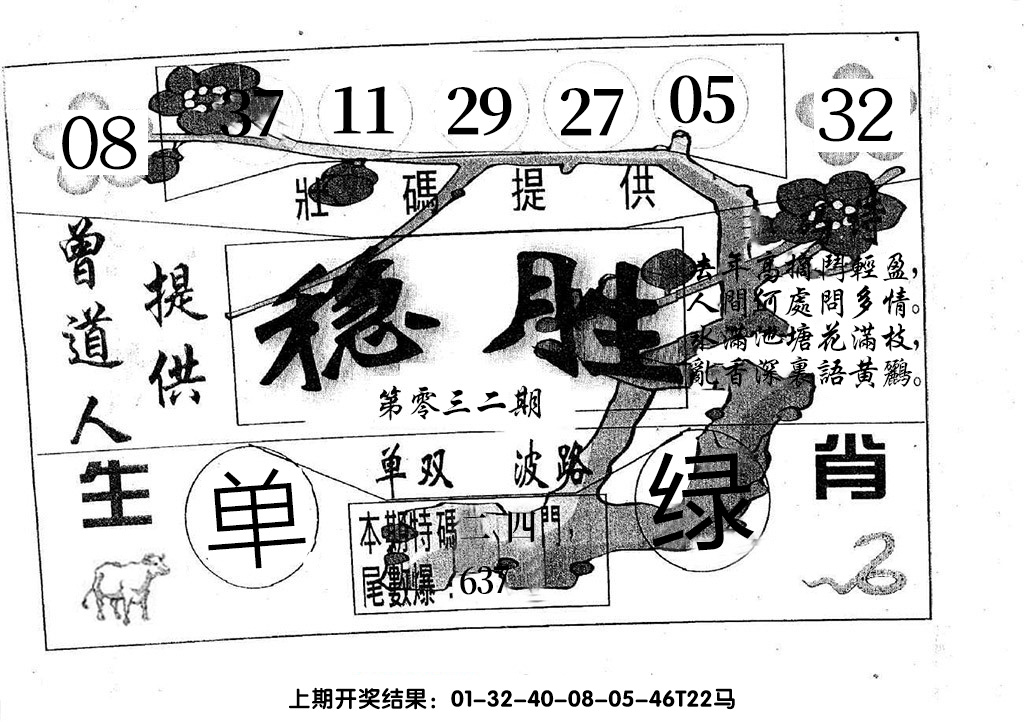 08 37 11 29 27 05 32
壯碼提供
特
曾道人
提供
稳胜
第零三二期
去年高摘鬥輕盈，
人間何處問多情。
水滿池塘花滿枝，
亂香深裏語黃鸝。
单双 波路
生肖
单
绿
本期特碼二、四門，
尾數爆：637
上期开奖结果：01-32-40-08-05-46T22马